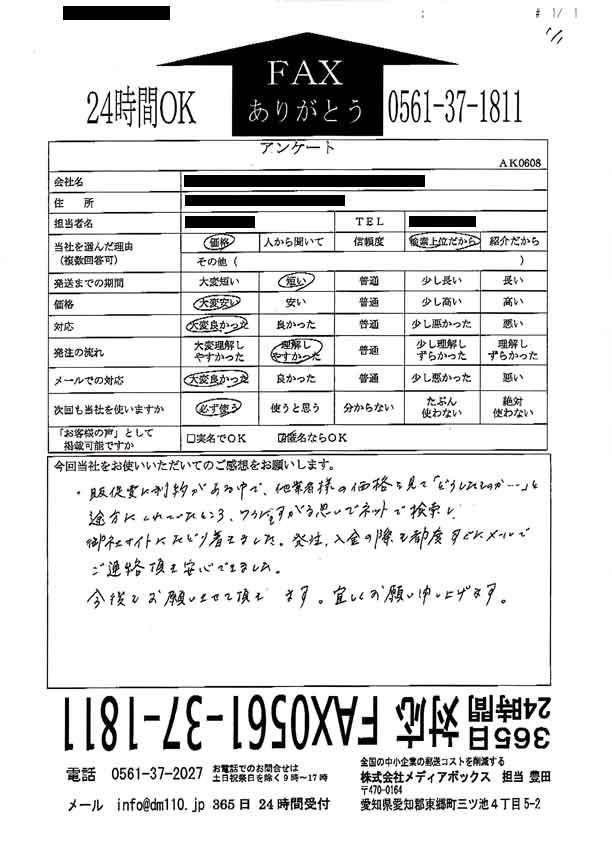 # 1/ 1
FAX
ありがとう
24時間OK
0561-37-1811
アンケート
AK0608
会社名
住 所
担当者名 TEL
当社を選んだ理由 (複数回答可) 価格 人から聞いて 信頼度 検索上位だから 紹介だから
その他 ( )
発送までの期間 大変短い 短い 普通 少し長い 長い
価格 大変安い 安い 普通 少し高い 高い
対応 大変良かった 良かった 普通 少し悪かった 悪い
発注の流れ 大変理解しやすかった 理解しやすかった 普通 少し理解しずらかった 理解しずらかった
メールでの対応 大変良かった 良かった 普通 少し悪かった 悪い
次回も当社を使いますか 必ず使う 使うと思う 分からない たぶん使わない 絶対使わない
「お客様の声」として掲載可能ですか □実名でOK ☑匿名ならOK
今回当社をお使いいただいてのご感想をお願いします。
・販促費に制約がある中で、他業者様の価格を見て「どうしたものか…」と
途方にくれていたところ、ワラをもすがる思いでネットで検索し、
御社サイトにたどり着きました。発注、入金の際も都度すぐにメールで
ご連絡頂き安心できました。
今後もお願いさせて頂きます。宜しくお願い申し上げます。
365日
24時間 対応 FAX0561-37-1811
電話 0561-37-2027 お電話でのお問合せは
土日祝祭日を除く9時~17時
メール info@dm110.jp 365日 24時間受付
全国の中小企業の郵送コストを削減する
株式会社メディアボックス 担当 豊田
〒470-0164
愛知県愛知郡東郷町三ツ池4丁目5-2